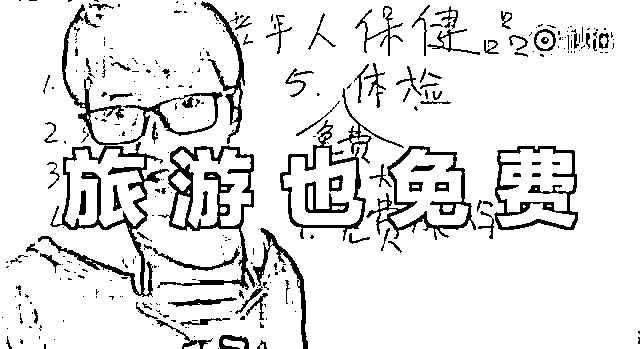 老年人保健品
秒拍
1.
5. 体检
2.
免费
3
旅游也免费